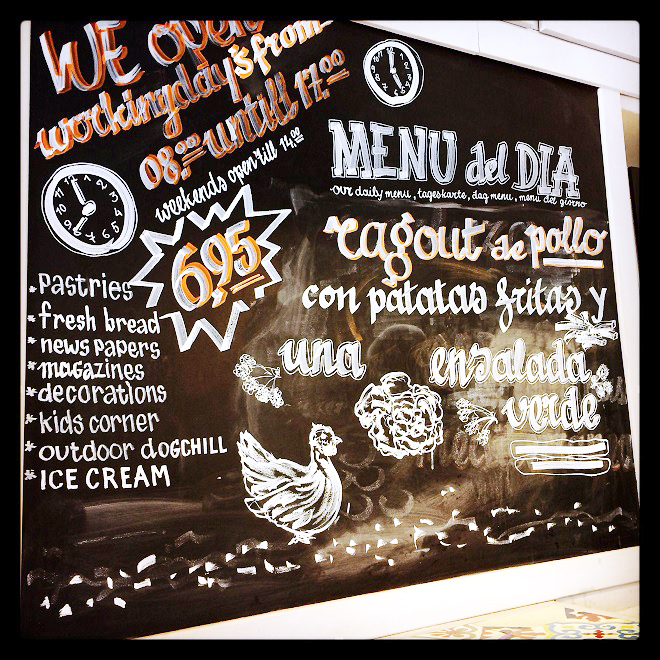 WE open
workingday's from
08.00 untill 17.00
weekends open till 14.00
6,95
*pastries
*fresh bread
*news papers
*magazines
*decorations
*kids corner
*outdoor doGCHILL
*ICE CREAM
MENU del DIA
our daily menu, tageskarte, dag menu, menu del giorno
ragout de pollo
con patatas fritas y
una ensalada
verde